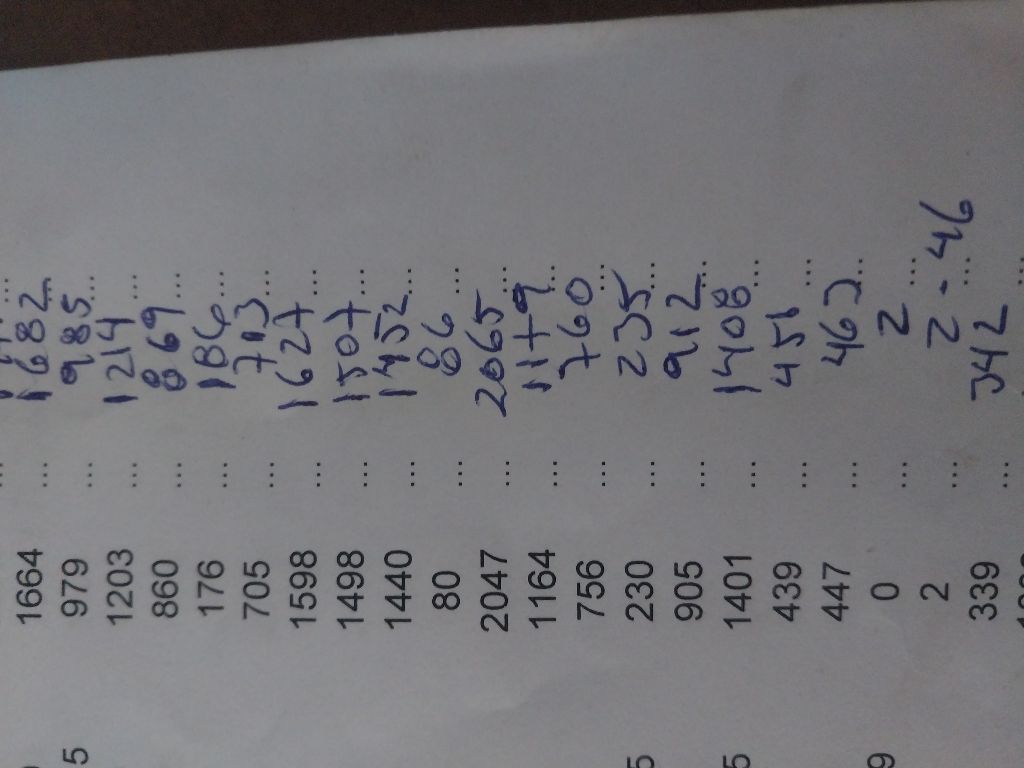 1664 ... 1682...
979 ... 985...
1203 ... 1214...
860 ... 869...
176 ... 186...
705 ... 713...
1598 ... 1627...
1498 ... 1507...
1440 ... 1452...
80 ... 86...
2047 ... 2065...
1164 ... 1179...
756 ... 760...
230 ... 235...
905 ... 912...
1401 ... 1408...
439 ... 451...
447 ... 463...
0 ... 2...
2 ... 2-46...
339 ... 342